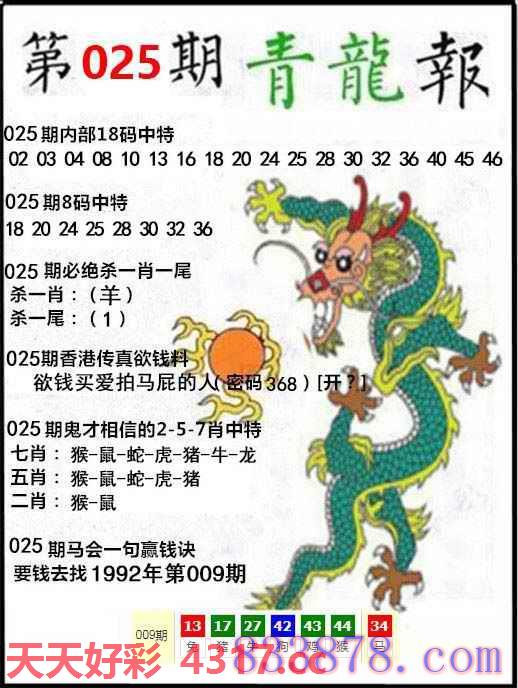 第025期青龍報
025期内部18码中特
02 03 04 08 10 13 16 18 20 24 25 28 30 32 36 40 45 46
025期8码中特
18 20 24 25 28 30 32 36
025期必绝杀一肖一尾
杀一肖：（羊）
杀一尾：（1）
025期香港传真欲钱料
欲钱买爱拍马屁的人（密码368）[开？]
025期鬼才相信的2-5-7肖中特
七肖：猴-鼠-蛇-虎-猪-牛-龙
五肖：猴-鼠-蛇-虎-猪
二肖：猴-鼠
025期马会一句赢钱诀
要钱去找1992年第009期
009期 13 17 27 42 43 44 34
兔 猪 牛 狗 鸡 猴 马
天天好彩 4317.cc
833878.com